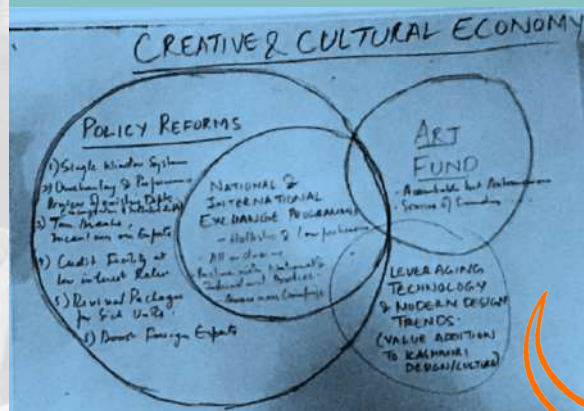 CREATIVE & CULTURAL ECONOMY
POLICY REFORMS
1) Single Window System
2) Overhauling & Performance
Review of existing Deptts
3) Tax Breaks,
Incentives on Exports
4) Credit Facility at
low interest Rates
5) Revival Packages
for Sick Units
6) Boost Foreign Exports
NATIONAL &
INTERNATIONAL
EXCHANGE PROGRAMME
- Holistic &
- All inclusive
Awareness Campaigns
ART
FUND
- Accountable but Autonomous
- Sources of Funding
LEVERAGING
TECHNOLOGY
& MODERN DESIGN
TRENDS.
(VALUE ADDITION
TO KASHMIRI
DESIGN/CULTURE)